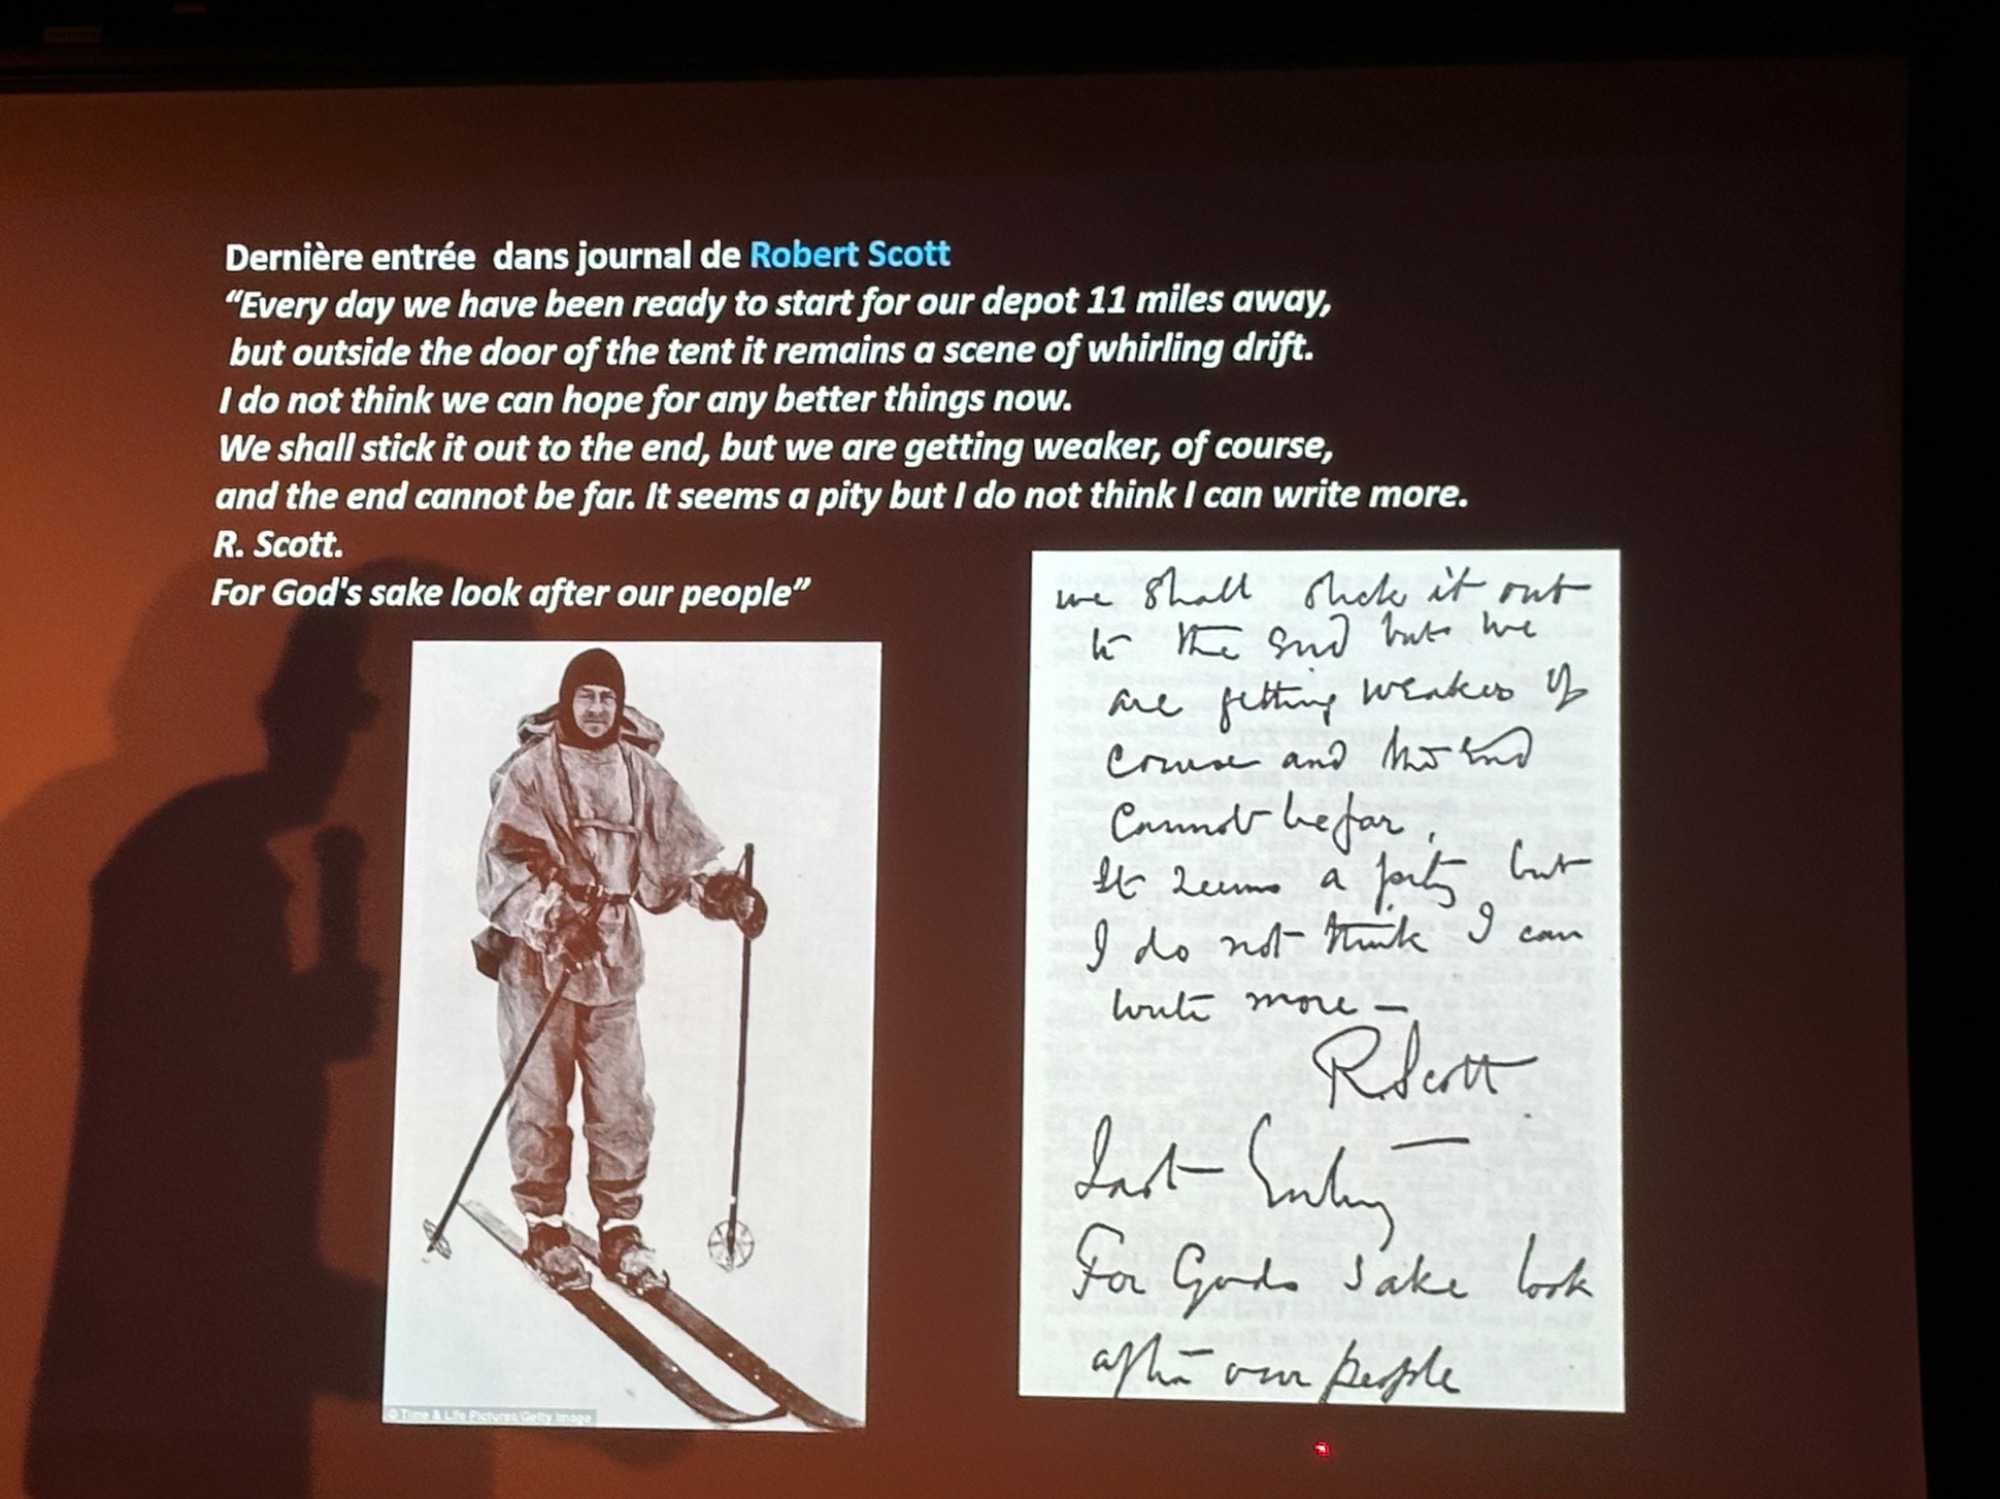 Dernière entrée dans journal de Robert Scott
“Every day we have been ready to start for our depot 11 miles away,
but outside the door of the tent it remains a scene of whirling drift.
I do not think we can hope for any better things now.
We shall stick it out to the end, but we are getting weaker, of course,
and the end cannot be far. It seems a pity but I do not think I can write more.
R. Scott.
For God's sake look after our people”
© Time & Life Pictures/Getty Image
we shall stick it out
to the end but we
are getting weaker of
course and the end
cannot be far.
It seems a pity but
I do not think I can
write more –
R. Scott
Last Entry
For Gods sake look
after our people